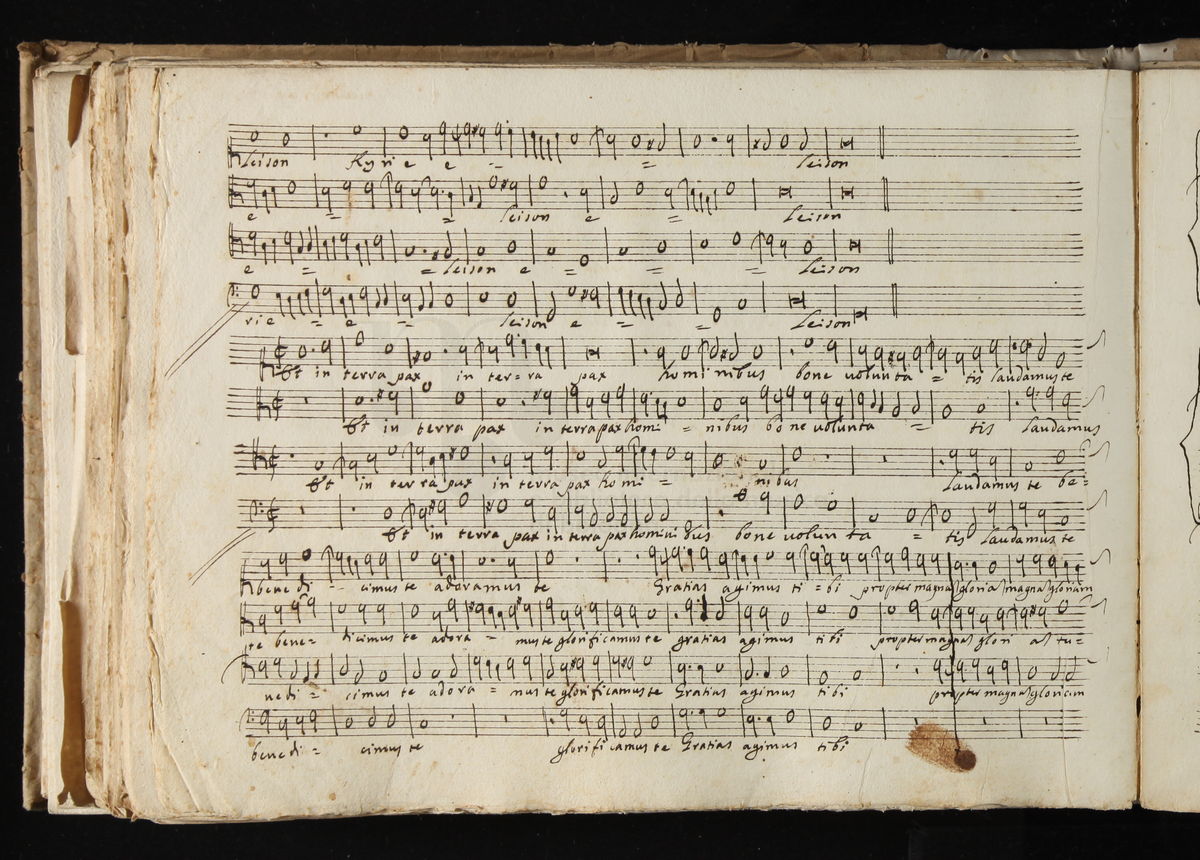 leison Kyrie e = leison
e = = leison e = leison
e = = leison e = = = leison
rie = e = leison e = = leison
Et in terra pax in ter=ra pax hominibus bone volunta = tis laudamus te
Et in terra pax in terra pax homi = nibus bone volunta = tis laudamus
Et in terra pax in terra pax homi = nibus laudamus te be=
Et in terra pax in terra pax hominibus bone volunta = tis laudamus te
benedi - cimus te adoramus te Gratias agimus ti=bi propter magna gloria magna gloriam
te bene= dicimus te adora = mus te glorificamus te gratias agimus tibi propter magna glori am tu=
nedi = cimus te adora = mus te glorificamus te Gratias agimus tibi propter magna gloriam
benedi = cimus te glorificamus te Gratias agimus tibi